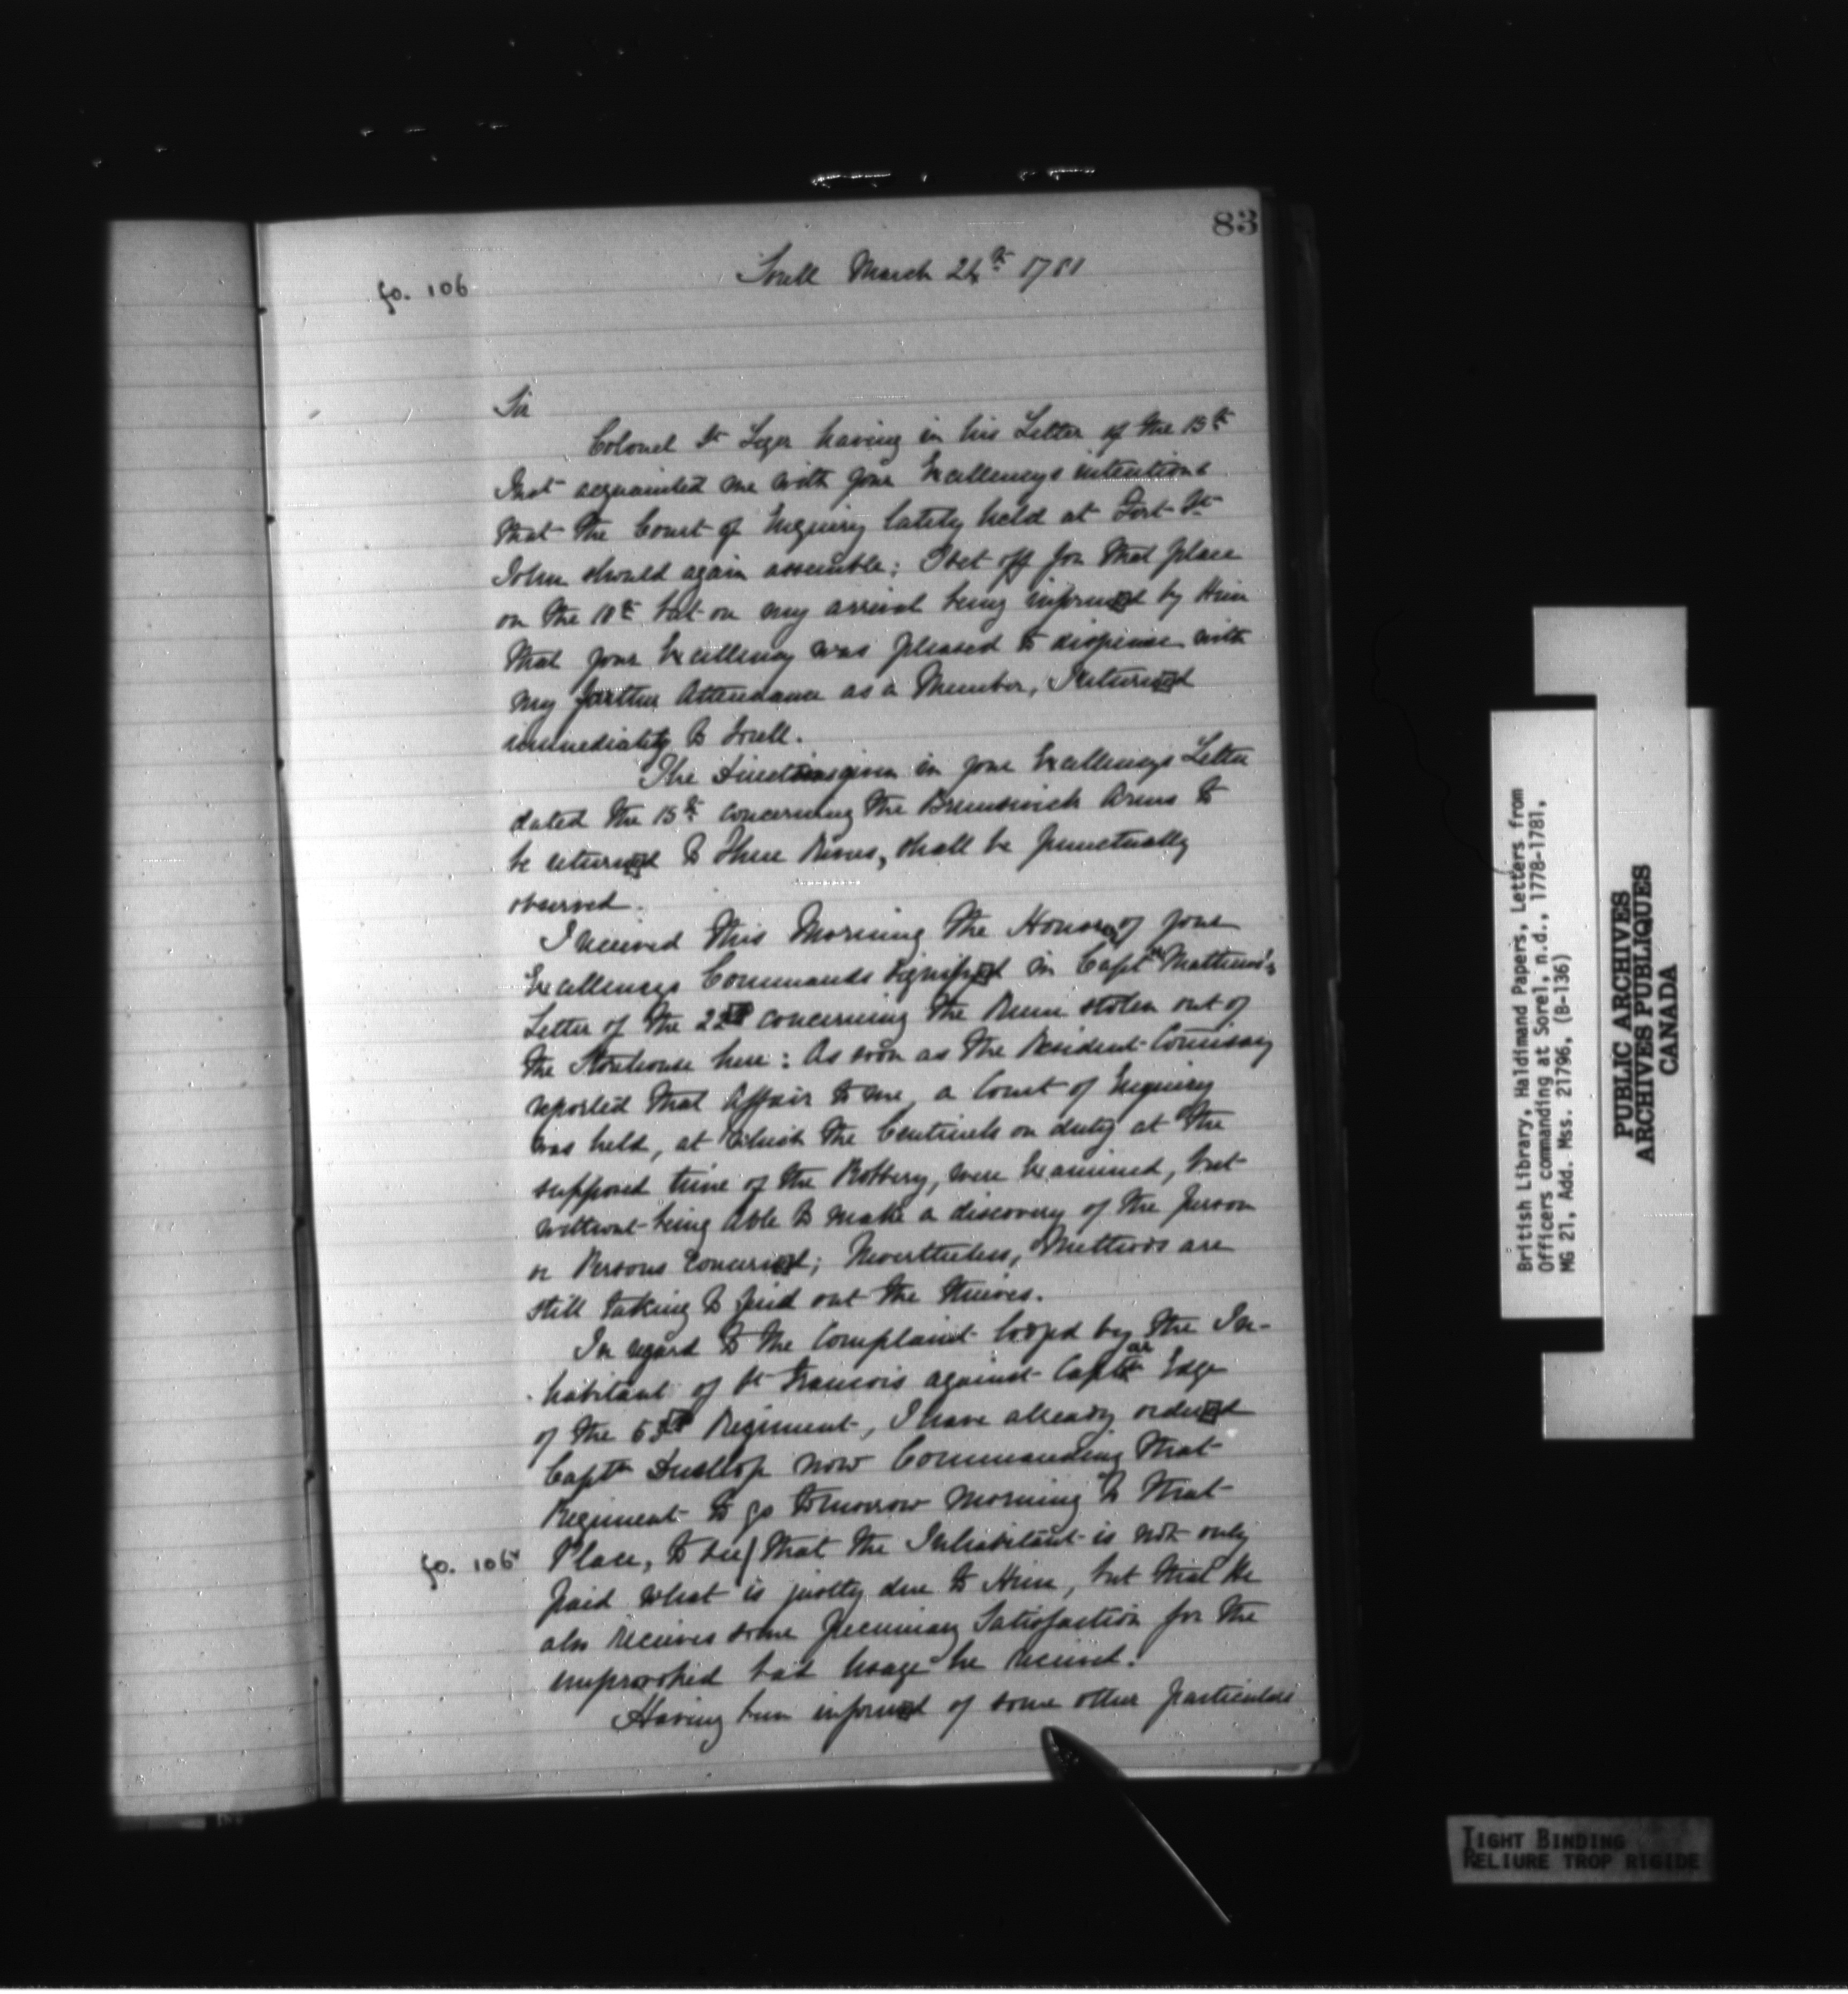 83
fo. 106
Sorell March 24th 1781
Sir
Colonel St Leger having in his Letter of the 15th
Inst acquainted me with your Excellencys intentions
that the Court of Enquiry lately held at Fort St
John should again assemble; I set off for that place
on the 18th but on my arrival being inform'd by Him
that your Excellency was pleased to dispense with
my further Attendance as a Member, I return'd
immediately to Sorell.
The Directions given in your Excellencys Letter
dated the 15th concerning the Brunswick Arms to
be return'd to Three Rivers, shall be punctually
observed.
I received this Morning the Honor of your
Excellencys Commands signify'd in Captn Mathews's
Letter of the 22d concerning the Rum stolen out of
the Storehouse here: As soon as the Resident Comissary
reported that Affair to me a Court of Enquiry
was held, at which the Centinels on duty at the
supposed time of the Robbery, were Examined, but
without being able to make a discovery of the person
or Persons concern'd; Nevertheless, Methods are
still taking to find out the thieves.
In regard to the Complaint lodg'd by the In-
habitant of St Francois against Captn Edgar
of the 53d Regiment, I have already order'd
Captn Dunlop now Commanding that
Regiment to go tomorrow Morning to that
fo. 106v
Place, to see/ that the Inhabitant is not only
paid what is justly due to Him, but that He
also receives some pecuniary Satisfaction for the
unprovoked bad usage he received.
Having been inform'd of some other particulars
British Library, Haldimand Papers, Letters from
Officers commanding at Sorel, n.d., 1778-1781,
MG 21, Add. Mss. 21796, (B-136)
PUBLIC ARCHIVES
ARCHIVES PUBLIQUES
CANADA
TIGHT BINDING
RELIURE TROP RIGIDE